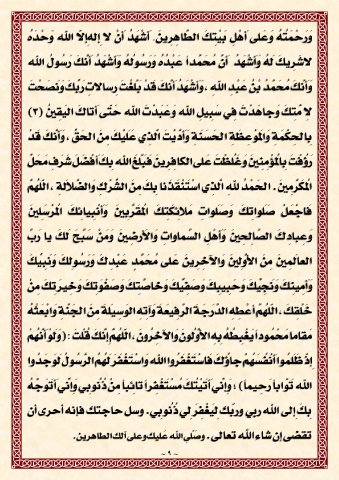 وَرَحْمَتُهُ وَعَلى أهْلِ بَيْتِكَ الطّاهِرينَ. أشْهَدُ أنْ لا إلهَ إلاّ اللّه وَحْدَهُ
لاشريكَ لَهُ وأشْهَدُ أنْ مُحَمّداً عَبْدُهُ وَرَسُولُهُ وَأشْهَدُ أنّكَ رسولُ اللّه
وَأنّكَ مُحَمّدُ بْنُ عَبدِ اللّه ، وَأشْهَدُ أنّكَ قَدْ بَلّغْتَ رسالاتِ رَبّكَ وَنَصَحْتَ
لاُمّتِكَ وَجاهَدْتَ في سبيلِ اللّه وَعَبَدْتَ اللّه حَتّى أتاكَ اليَقينُ (٢)
بِالحِكْمَةِ وَالمَوْعِظَةِ الحَسَنَةِ وَأدّيْتَ الّذي عَلَيْكَ مِنَ الحَقّ ، وَأنّكَ قَدْ
رَؤُفْتَ بِالمُؤْمِنينَ وَغَلُظْتَ عَلى الكافِرينَ فَبَلَغَ اللّه بِكَ أفْضَلَ شَرَفِ مَحَلّ
المُكَرّمينَ. الحَمْدُ للّه الّذي اسْتَنْقَذَنا بِكَ مِنَ الشّرْكِ وَالضّلالَةِ ، اللّهُمّ
فَاجْعَلْ صَلَواتِكَ وصلوات مَلائِكَتِكَ المُقَرّبينَ وَأنْبِيائِكَ المُرْسَلينَ
وَعِبادِكَ الصّالِحينَ وَأهْلِ السّماواتِ وَالأرَضينَ وَمَنْ سَبّحَ لَكَ يا رَبّ
العالَمينَ مِنَ الأوّلينَ وَالآخِرينَ عَلى مُحَمّدٍ عَبْدِكَ وَرَسولِكَ وَنَبِيّكَ
وَأمينِكَ وَنَجِيّكَ وَحَبيبِكَ وَصَفِيّكَ وَخاصّتِكَ وَصَفْوَتِكَ وَخيرَتِكَ مِنْ
خَلْقِكَ ، اللّهُمّ أعْطِهِ الدّرَجَةَ الرّفيعَةَ وَآتِهِ الوَسيلَةَ مِنَ الجَنّةِ وَابْعَثْهُ
مَقاماً مَحْمُوداً يَغْبِطُهُ بِهِ الأوّلونَ وَالآخَرُونَ ، اللّهُمّ إنّكَ قُلْتَ : (وَلَو أنّهُمْ
إذْ ظَلَموا أنْفُسَهُمْ جاؤُكَ فَاسْتَغْفَرُوا اللّه وَاسْتَغْفَرَ لَهُمُ الرّسُولُ لَوَجَدُوا
اللّه تَوّاباً رَحيماً) ؛ وَإنّي أتَيْتُكَ مُسْتَغْفِراً تائِباً مِنْ ذُنُوبي وَإنّي أتَوَجّهُ
بِكَ إلى اللّه رَبّي وَرَبّكَ لِيَغْفِرَ لي ذُنُوبي. وسل حاجتك فإنه أحرى أن
تقضى إن شاء اللّه تعالى. وَصَلّي اللّه عَلَيْكَ وعلى آلك الطاهرين.
~ ٩ ~